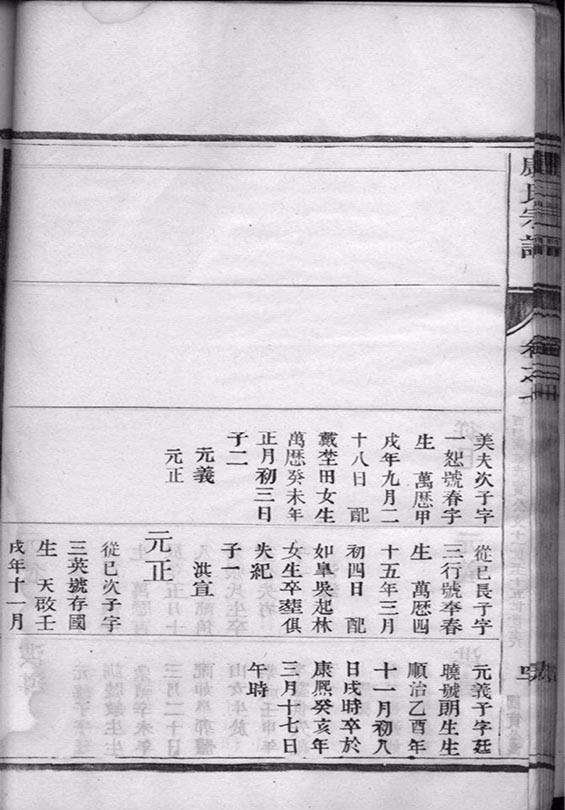 康氏宗譜
卷之
美夫次子字
一恕號春字
生 萬歷甲
戌年九月二
十八日 配
戴埜田女生
萬歷癸未年
正月初三日
子二
元義
元正
從巳長子字
三行號季春
生 萬歷四
十五年三月
初四日 配
如臯吳起林
女生卒塟俱
失紀
子一
洪宣
元正
從巳次子字
三英號存國
生 天啟壬
戌年十一月
元義子字廷
曉號明生生
順治乙酉年
十一月初八
日戌時卒於
康熙癸亥年
三月十七日
午時